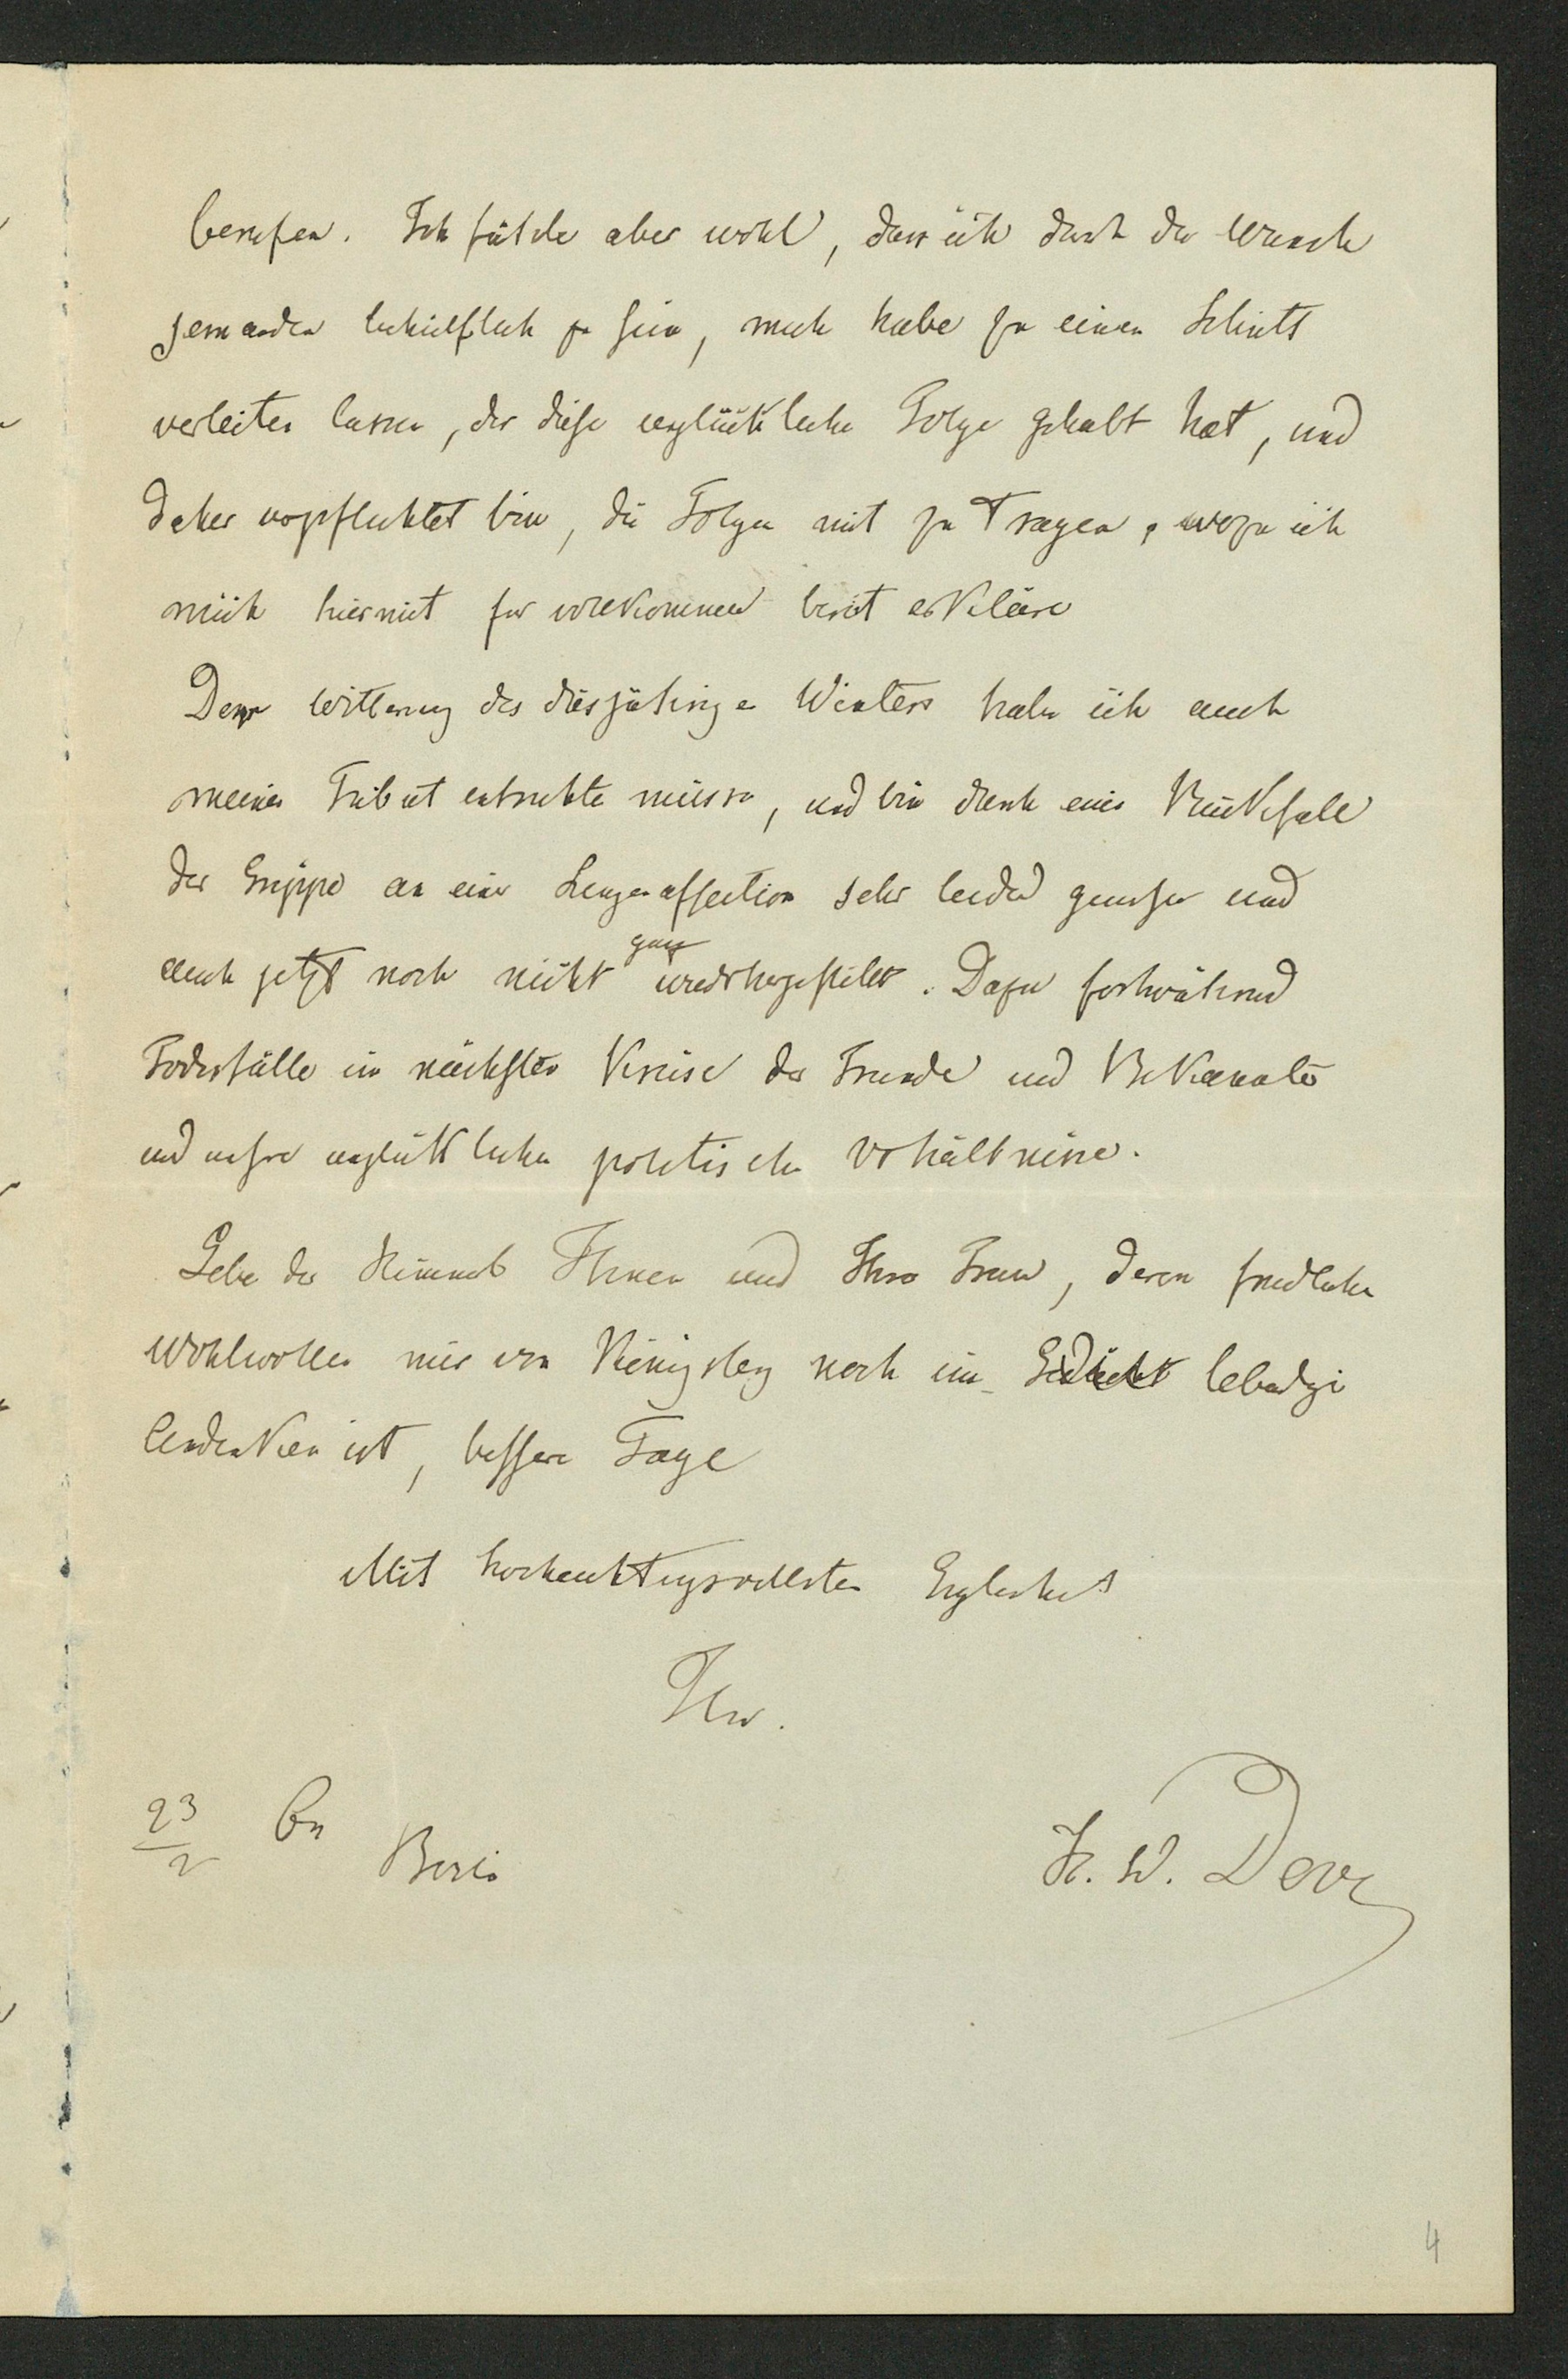 berufen. Ich fühle aber wohl, dass ich durch den Wunsch
jemanden behülflich zu sein, mich habe zu einem Schritt
verleiten lassen, der diese unglückliche Folge gehabt hat, und
daher verpflichtet bin, die Folgen mit zu tragen, wozu ich
mich hiermit für vollkommen bereit erkläre
Der Witterung des diesjährigen Winters habe ich auch
meinen Tribut entrichten müssen, und bin durch einen Rückfall
der Grippe an einer Lungenaffection sehr leidend gewesen und
auch jetzt noch nicht ganz wiederhergestellt. Dazu fortwährend
Todesfälle im nächsten Kreise der Freunde und Bekannten
und unsre unglücklichen politischen Verhältnisse.
Gebe der Himmel Ihnen und Ihrer Frau, deren freundliches
Wohlwollen mir von Königsberg noch im lebendigen
Andenken ist, bessere Tage
Mit hochachtungsvollster Ergebenheit
Ihr.
23/2 Berlin
H. W. Dove
4